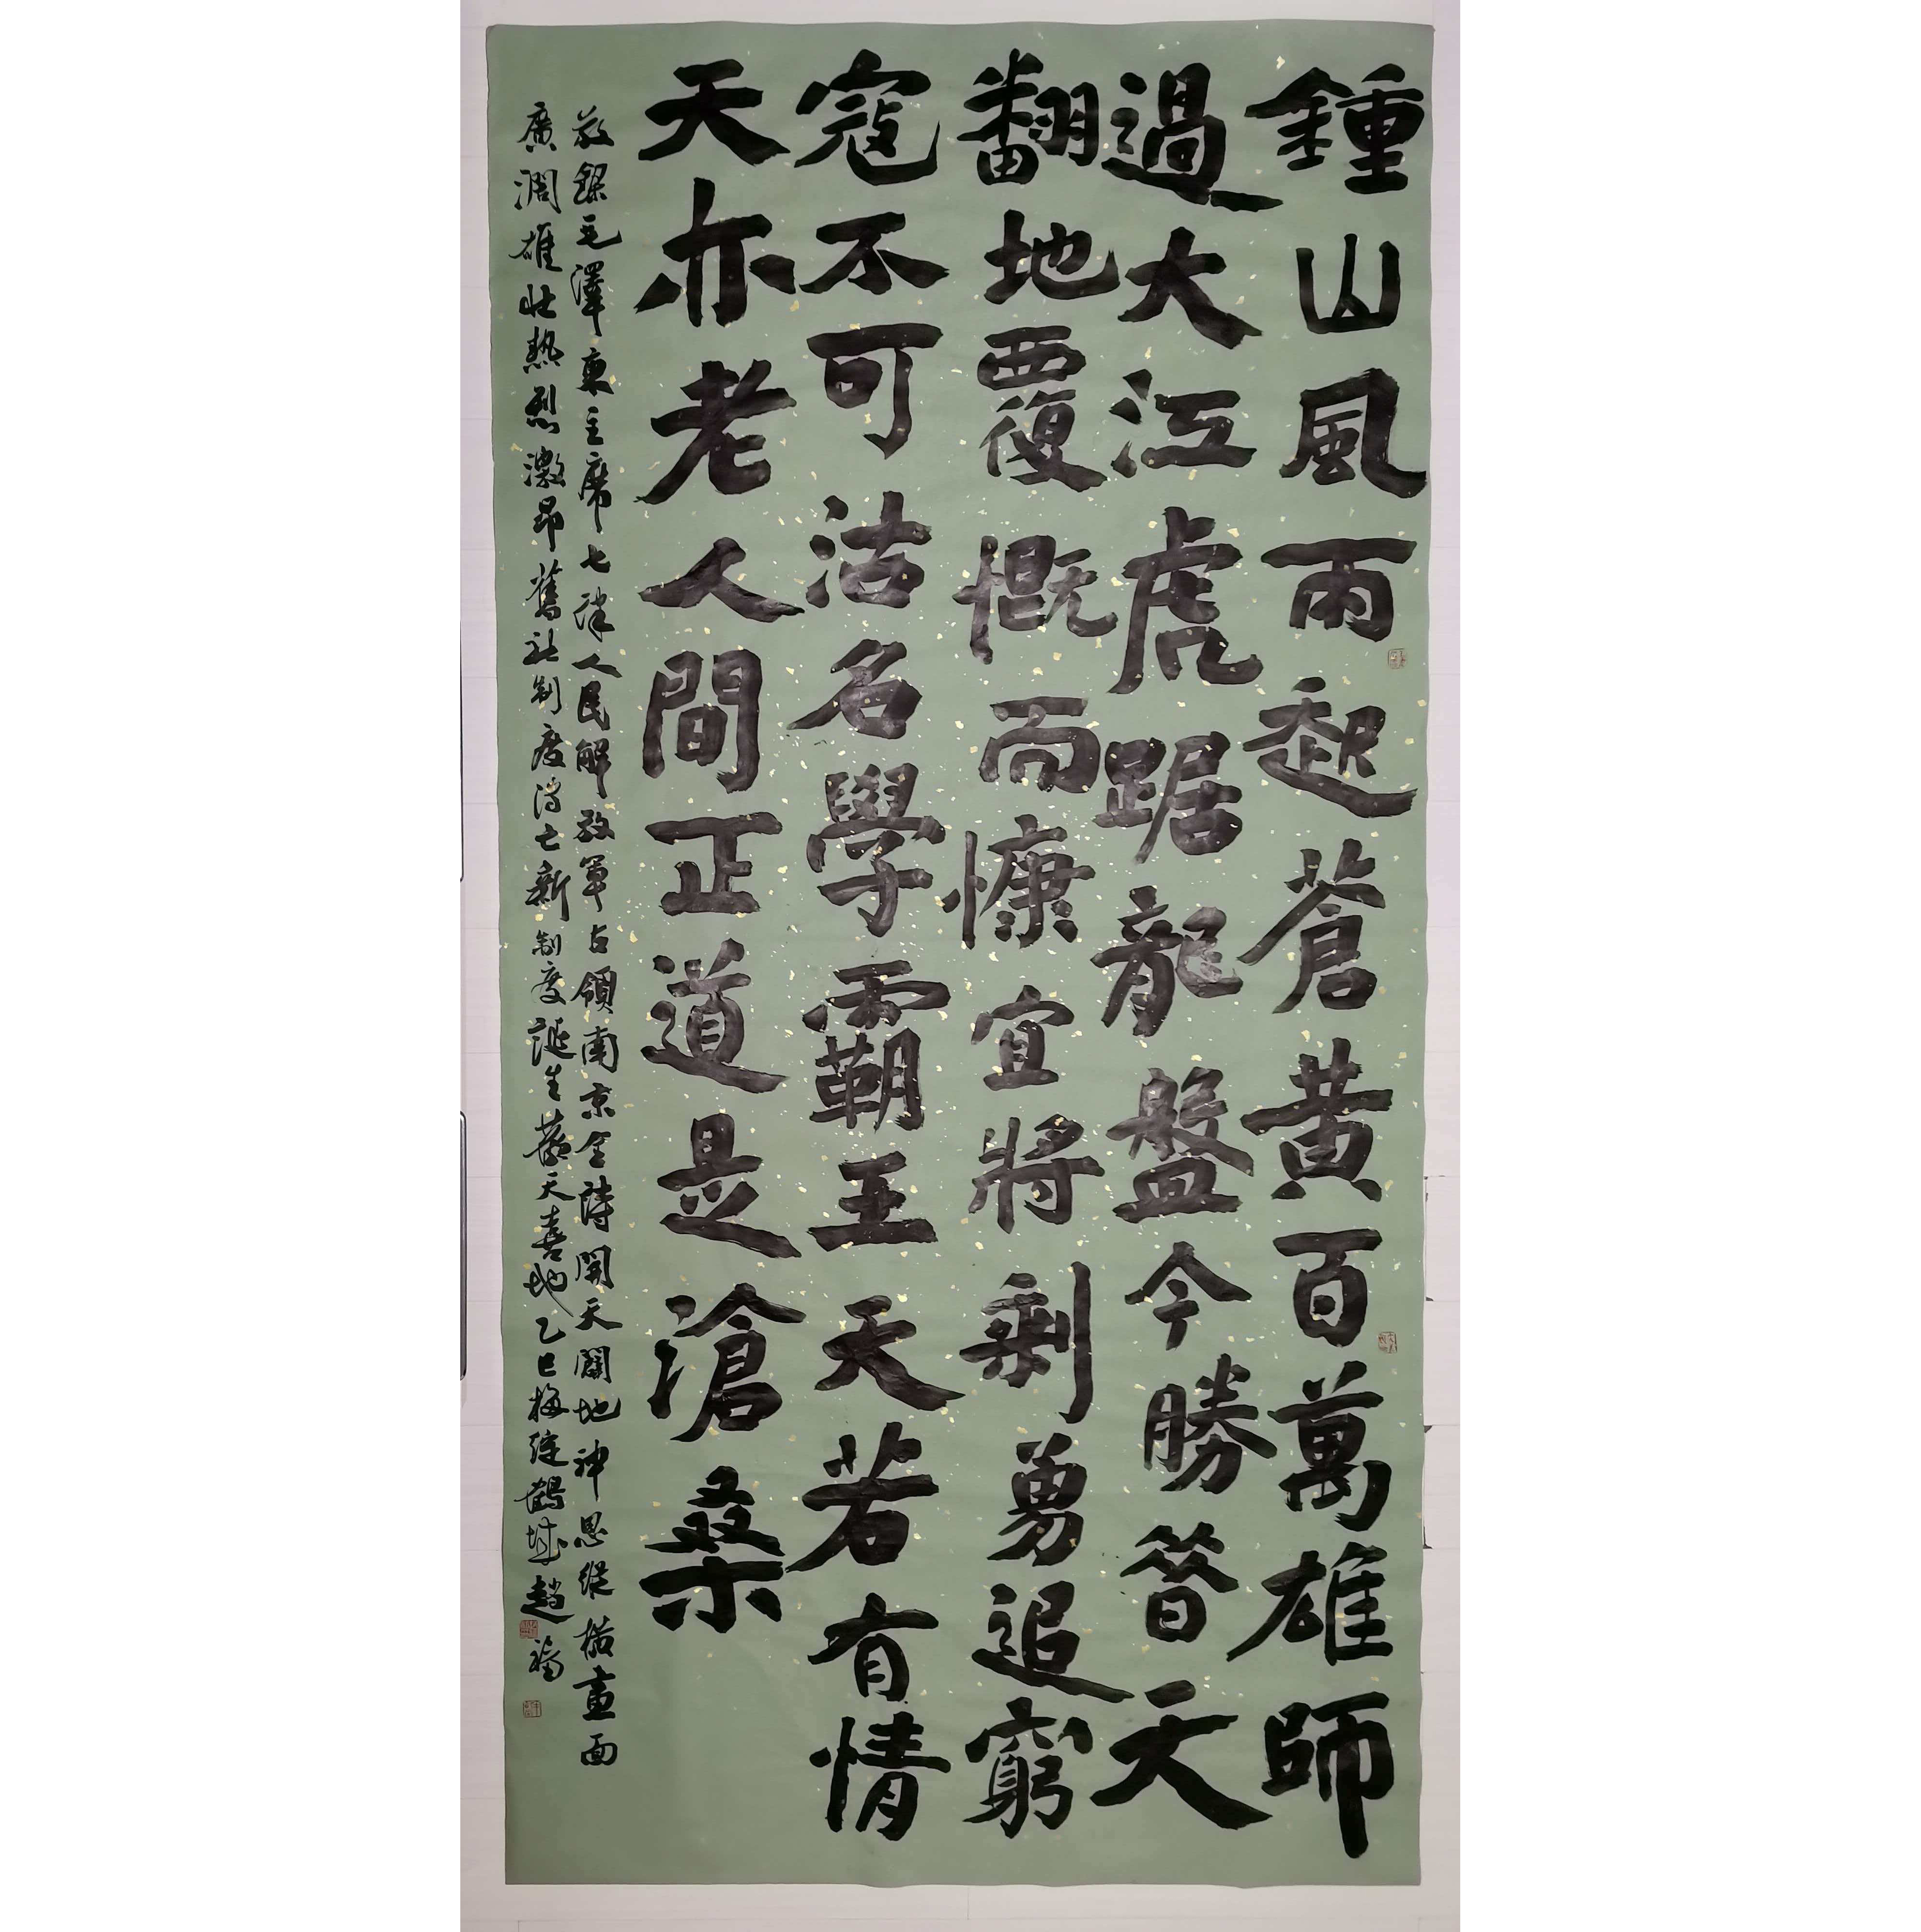 鍾山風雨起蒼黃百萬雄師
過大江虎踞龍盤今勝昔天
翻地覆慨而慷宜將剩勇追窮
寇不可沽名學霸王天若有情
天亦老人間正道是滄桑
敬錄毛澤東主席七律人民解放軍占領南京全詩開天闢地神思縱橫畫面
廣濶雄壯熱烈激昂舊社制度滅亡新制度誕生歡天喜地乙巳梅綻鶴城趙福